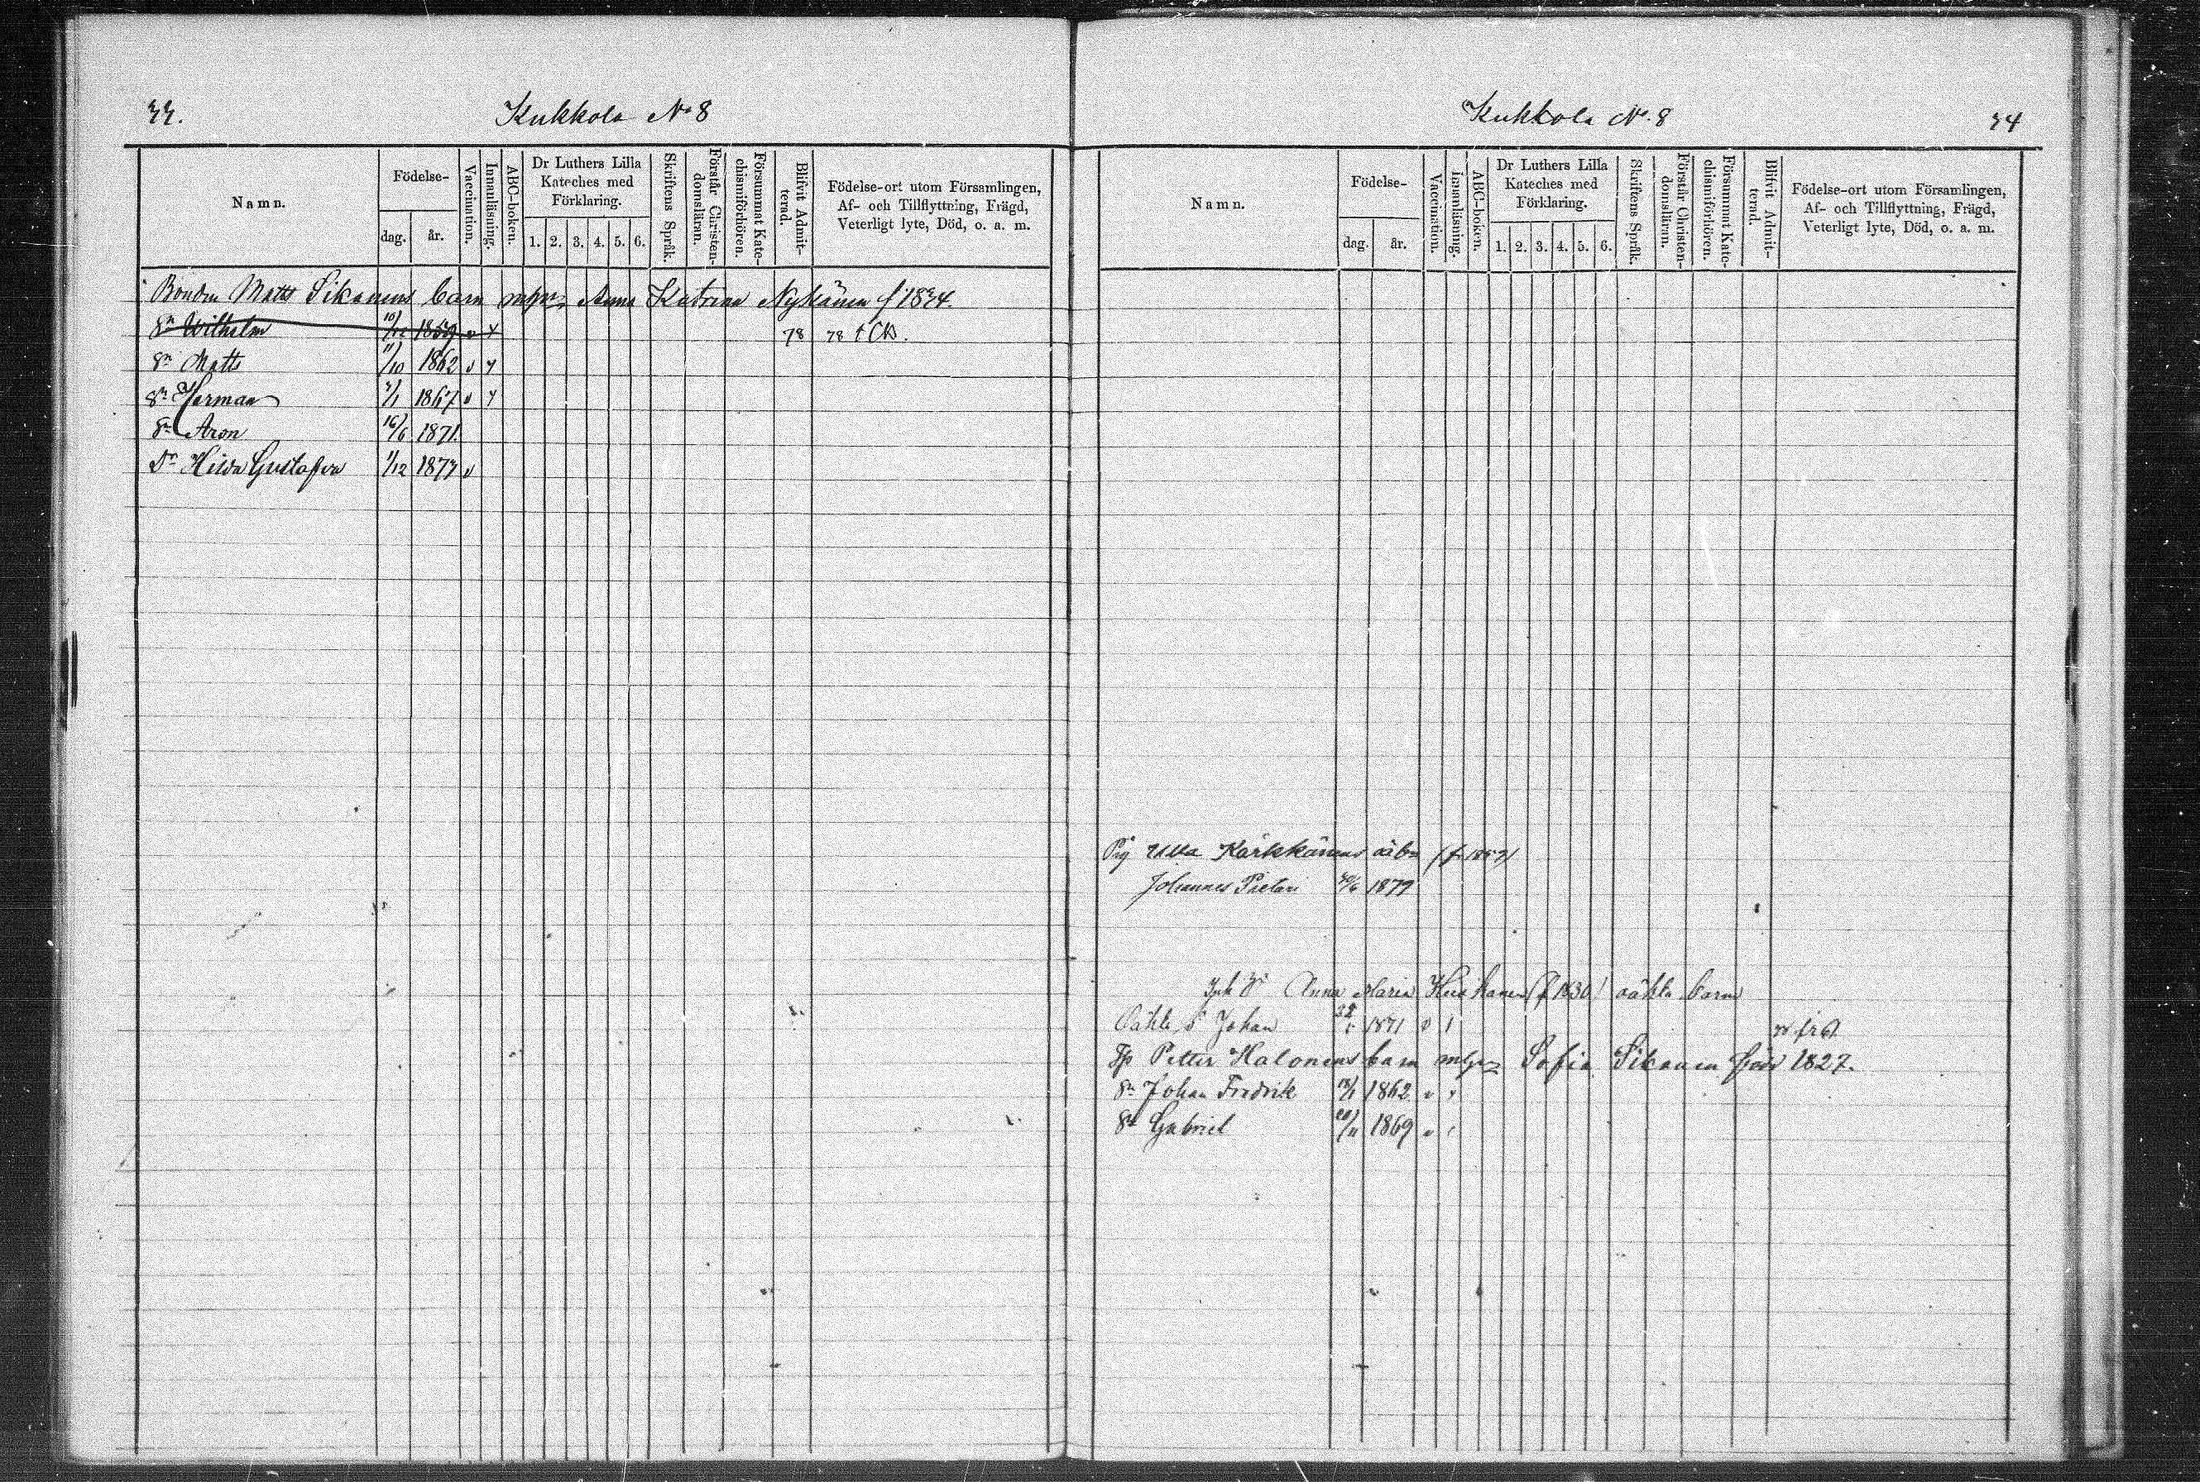 33.
Kukkola No 8
Namn.
Födelse-
dag. år.
Vaccination.
Innanläsning.
ABC-boken.
Dr Luthers Lilla
Kateches med
Förklaring.
1. 2. 3. 4. 5. 6.
Skriftens Språk.
Förstår Christen-
domsläran.
Försummat Kate-
chismiförhören.
Blifvit Admit-
terad.
Födelse-ort utom Församlingen,
Af- och Tillflyttning, Frägd,
Veterligt lyte, Död, o. a. m.
Bonden Matts Sikanens barn Anna Katrina Nykänen f 1834.
Sn Wilhelm 10/12 1859 v x 78 78 †
Sn Matts 11/10 1862 v y
Sn Herman 1867 v y
Sn Aron 16/6 1871
Dr Hilda Gustafva 1/12 1877 v
Kukkola No. 8
34
Namn.
Födelse-
dag. år.
Vaccination.
Innanläsning.
ABC-boken.
Dr Luthers Lilla
Kateches med
Förklaring.
1. 2. 3. 4. 5. 6.
Skriftens Språk.
Förstår Christen-
domsläran.
Försummat Kate-
chismiförhören.
Blifvit Admit-
terad.
Födelse-ort utom Församlingen,
Af- och Tillflyttning, Frägd,
Veterligt lyte, Död, o. a. m.
Pig Ulla Kärkkänens oäbn (f. 1857)
Johannes Pietari 1879
Anna Maria (f 1830) oäkta barn
Oäkta s Johan 1871 v
Petter Halonens barn Sofia Sikanen född 1827.
Sn Johan Fredrik 18/1 1862 v
Sn Gabriel 20/11 1869 v